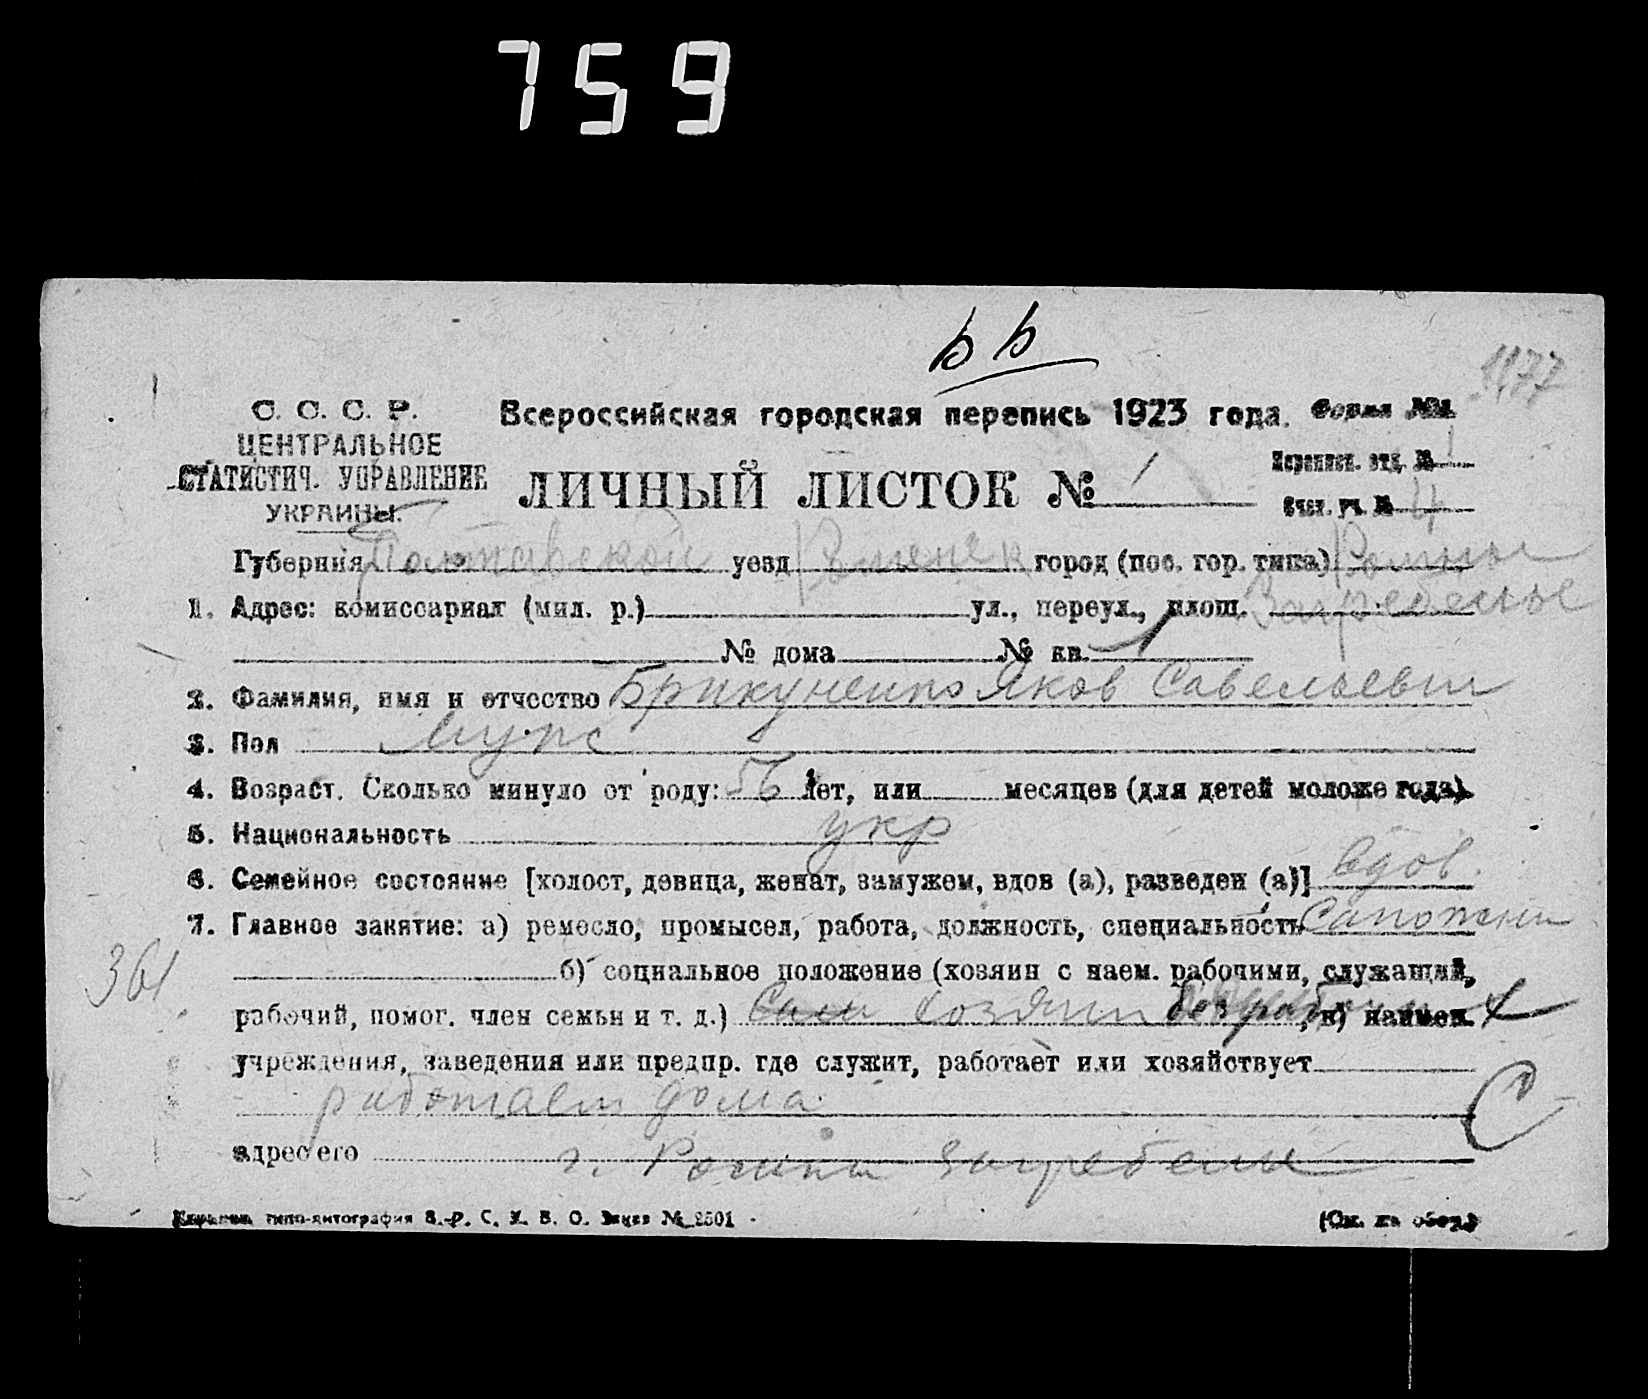 759
ЬЬ
1177
С. С. С. Р.
ЦЕНТРАЛЬНОЕ
СТАТИСТИЧ. УПРАВЛЕНИЕ
УКРАИНЫ.
Всероссийская городская перепись 1923 года. Форма №1.
ЛИЧНЫЙ ЛИСТОК № 1
Переписн. отд. № 1
Счет. уч. № 4
Губерния Полтавской уезд Роменск город (пос. гор. типа) Ромны
1. Адрес: комиссариат (мил. р.) ул., переул., площ. Загребелье
№ дома № кв. 1
2. Фамилия, имя и отчество Брикуненко Яков Савельевич
3. Пол Мужс
4. Возраст. Сколько минуло от роду: 56 лет, или месяцев (для детей моложе года).
5. Национальность укр
6. Семейное состояние [холост, девица, женат, замужем, вдов (а), разведен (а)] вдов.
7. Главное занятие: а) ремесло, промысел, работа, должность, специальность Сапожни
361
б) социальное положение (хозяин с наем. рабочими, служащий,
рабочий, помог. член семьи и т. д.) Сам хозяин без рабочи, в) наимен.
учреждения, заведения или предпр. где служит, работает или хозяйствует
работает дома
адрес его г. Ромны Загребелье
типо-литография З.-Р. С. Х. В. О. Заказ № 2501
(См. на обор.)